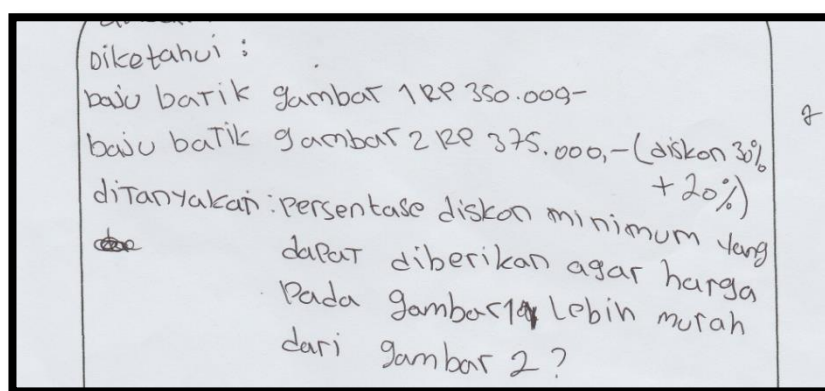 Diketahui :
baju batik gambar 1 RP 350.000-
baju batik gambar 2 RP 375.000,- (diskon 30%
+ 20%)
ditanyakan : persentase diskon minimum yang
dapat diberikan agar harga
pada gambar 1 lebih murah
dari gambar 2 ?